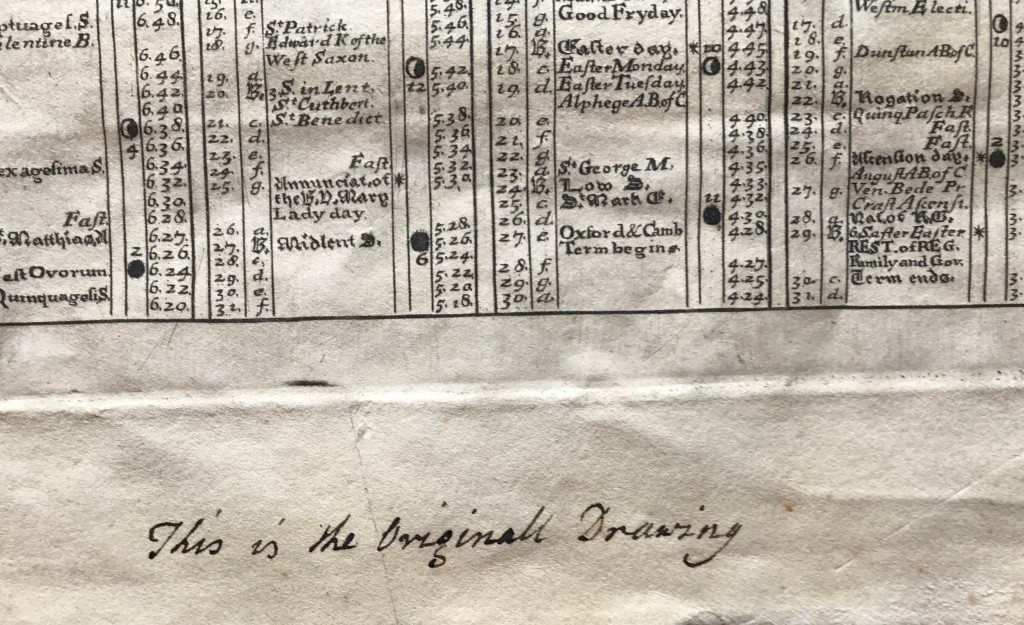 ptuages. S. 6.48. 16. e. 5.48. 15. g. Good Fryday. 4.48 Westm Electi.
lentine B. 17. f. St Patrick 5.46. 16. a. 4.47. 17. d.
18. g. Edward K of the 5.44 17. B. Easter day. * 20 4.45 18. e. 10
6.46. West Saxon. 18. c. Easter Monday 4.43 19. f. Dunstan A B of C
6.44 19. a. 5.42. 19. d. Easter Tuesday 4.42. 20. g.
6.42 20. B. 3. S. in Lent. 12 5.40. Alphege A. B. of C 21. a.
6.40 St Cuthbert. 22. B. Rogation S.
6.38. 21. c. St Benedict 5.38 20. e. 4.40. 23. c. Quinq Pasch R
4 6.36. 22. d. 5.36 21. f. 4.38. 24. d. Fast.
exagesima S. 6.34 23. e. Fast. 5.34 22. g. St George M. 4.36 25. e. Fast. 2
6.32. 24. f. Annunciat. of * 5.32 23. a. 4.35 26. f. Ascension day. *
6.30. 25. g. the B. V. Mary 5.30. 24. B. Low S. 4.33 August A B of C
Fast. 6.28. Lady day. 25. c. St Mark E. 11 4.32. 27. g. Ven. Bede Pr
Matthias A 6.27. 26. a. 5.28. 26. d. 4.30. Crast Ascensi.
2 6.26. 27. B. Midlent S. 5.26. 27. e. Oxford & Camb 4.28. 28. a. Nat. of K. C.
ast Ovorum. 6.24 28. c. 6 5.24. Term begins. 29. B. 6. S after Easter *
6.22 29. d. 5.22. 28. f. 4.27. REST. of REG.
Quinquages. S. 6.20. 30. e. 5.20 29. g. 4.25. Family and Gov.
31. f. 5.18. 30. a. 4.24. 30. c. Term ends.
31. d.
This is the Originall Drawing